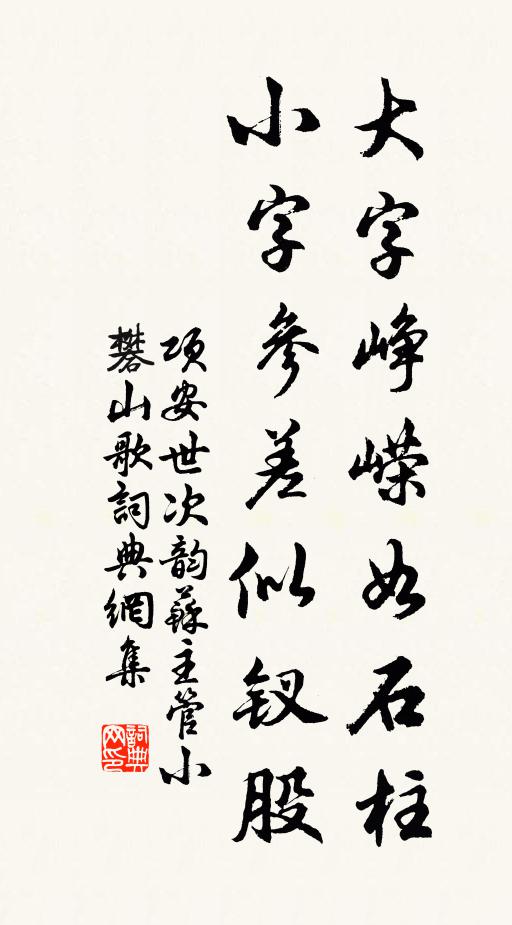 大字峥嵘如石柱
小字參差似钗股
项安世次韵蘇主管小
礬山歌詞典網集
詞典
网印